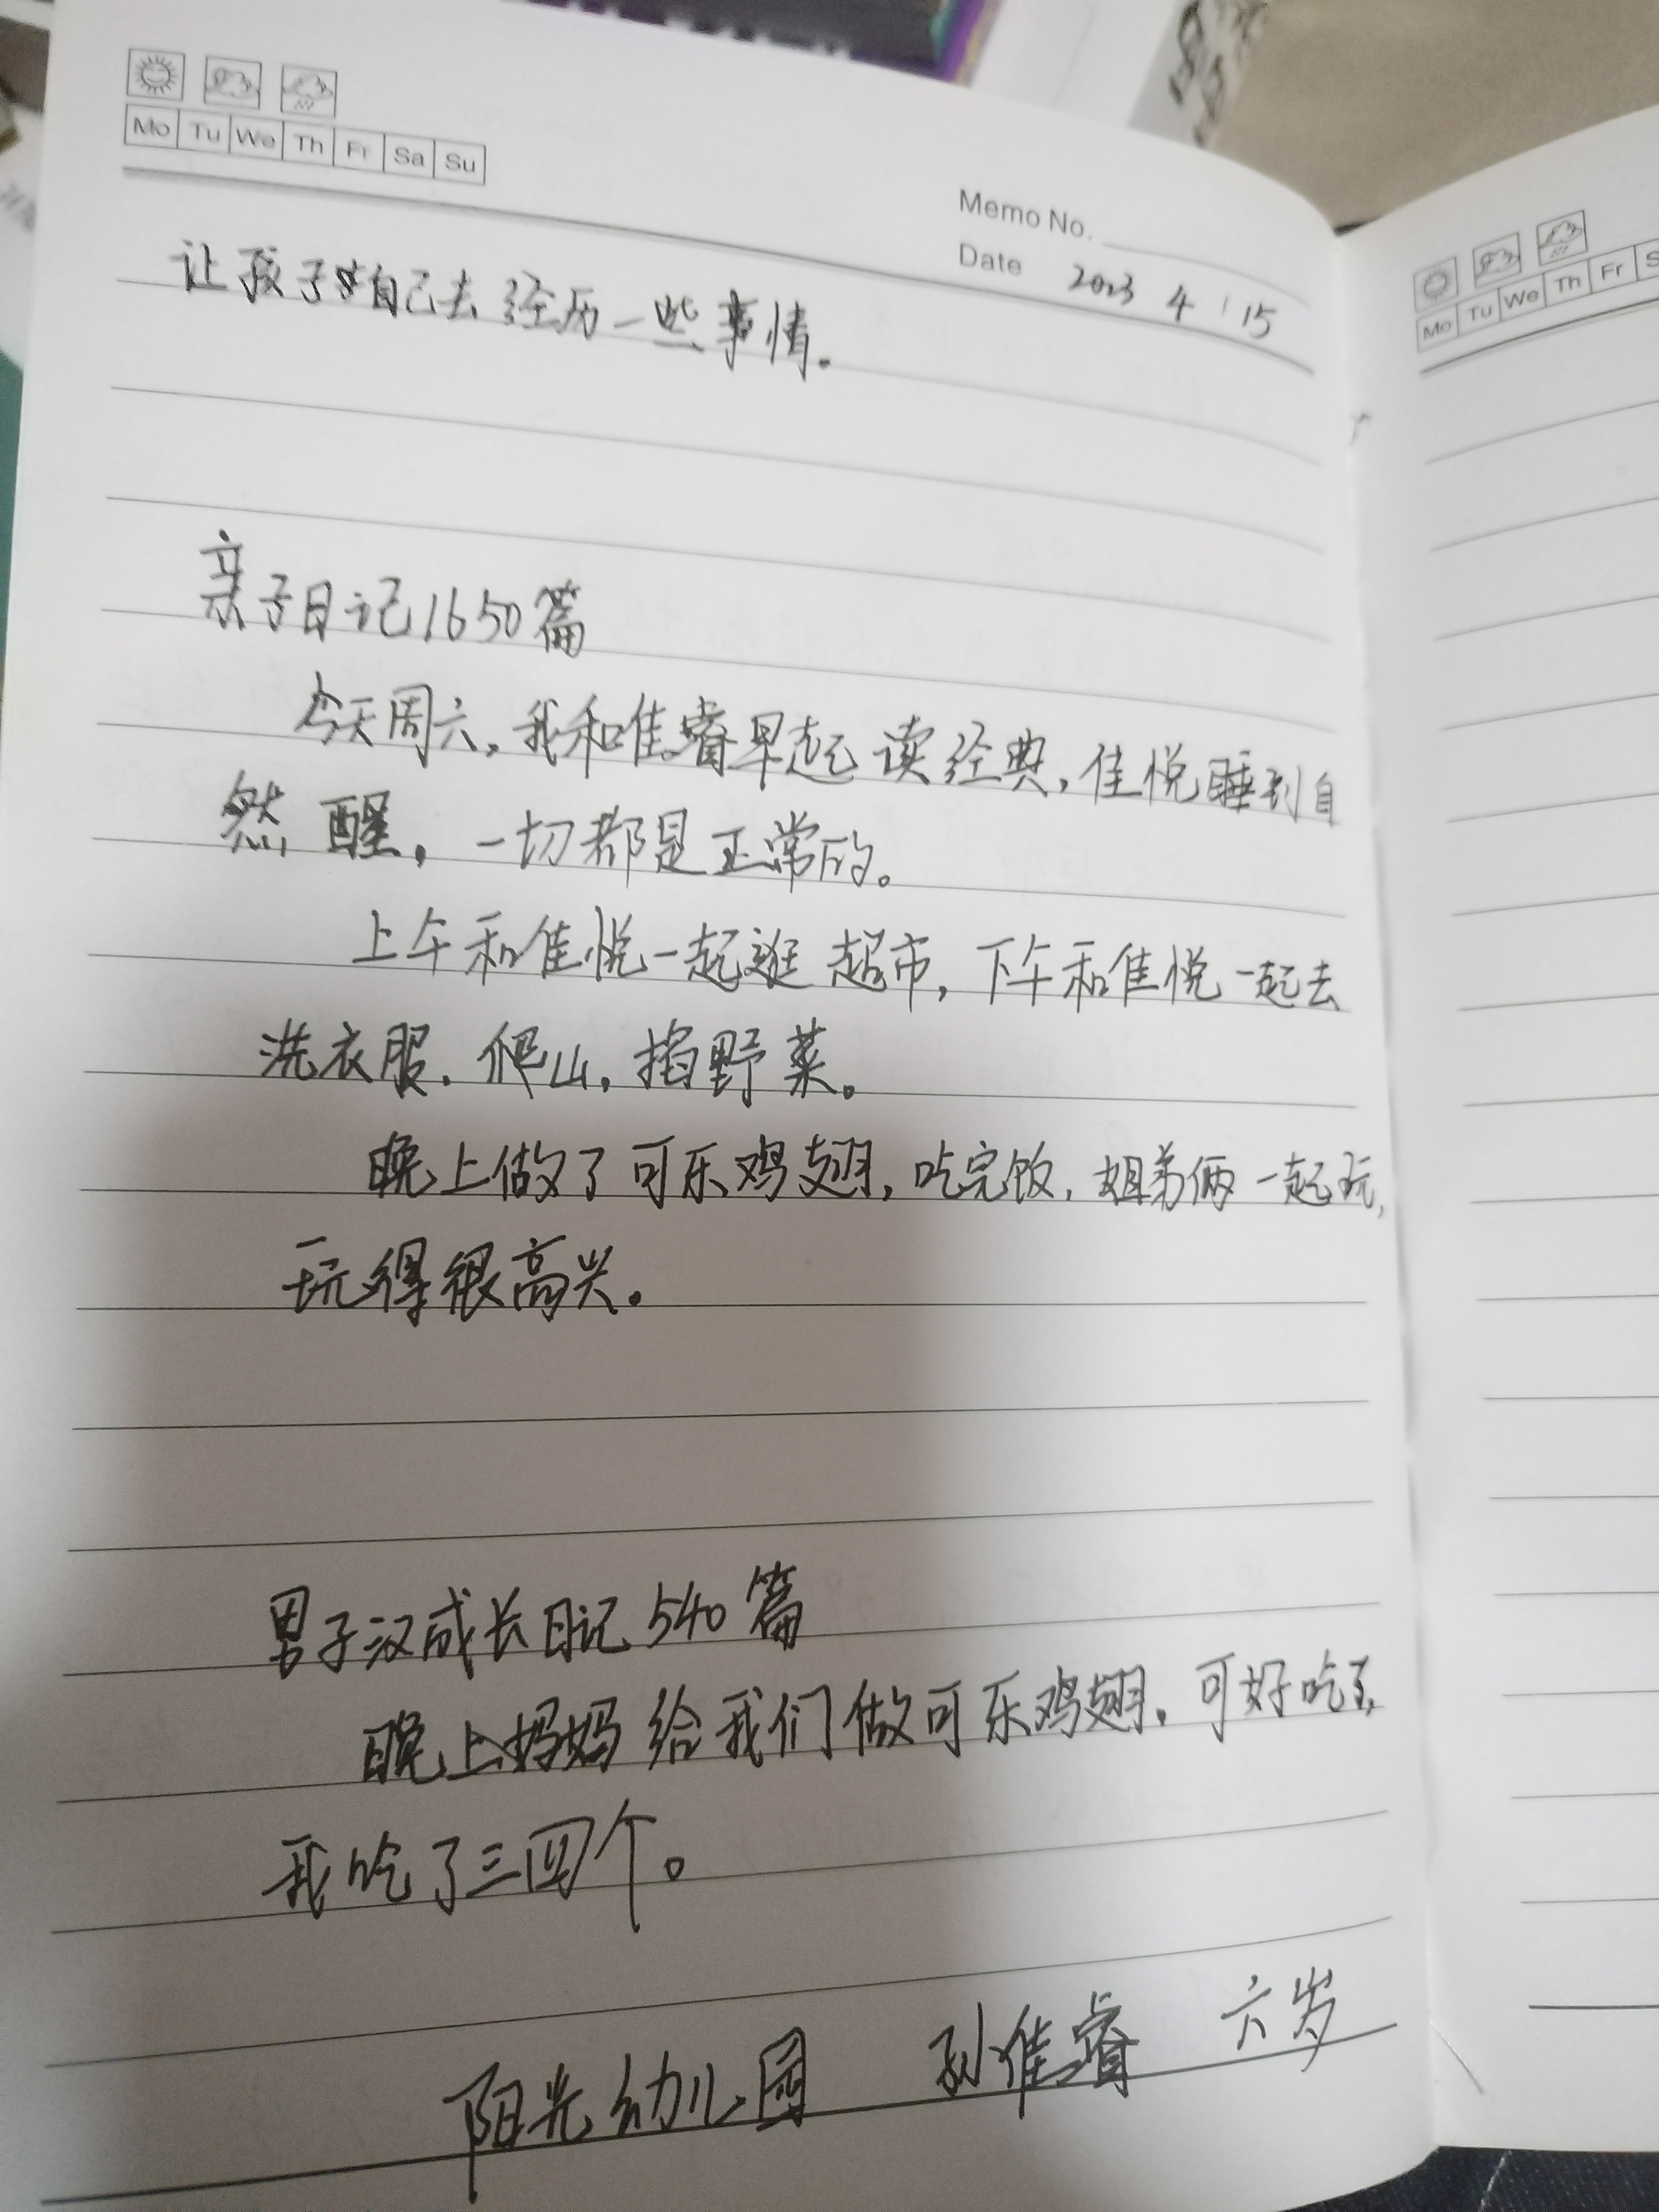 Mo Tu We Th Fr Sa Su
Memo No.
Date 2023 4 15
让孩子自己去经历一些事情.
亲子日记1650篇
今天周六,我和佳睿早起读经典,佳悦睡到自
然醒,一切都是正常的。
上午和佳悦一起逛超市,下午和佳悦一起去
洗衣服.爬山,掐野菜。
晚上做了可乐鸡翅,吃完饭,姐弟俩一起玩,
玩得很高兴。
男子汉成长日记540篇
晚上妈妈给我们做可乐鸡翅.可好吃了,
我吃了三四个。
阳光幼儿园 孙佳睿 六岁
Mo Tu We Th Fr S